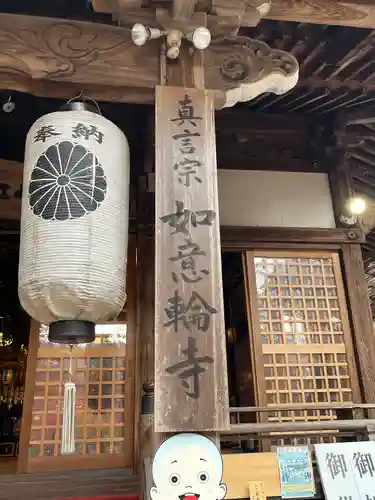 奉納
真言宗
如意輪寺
御
御